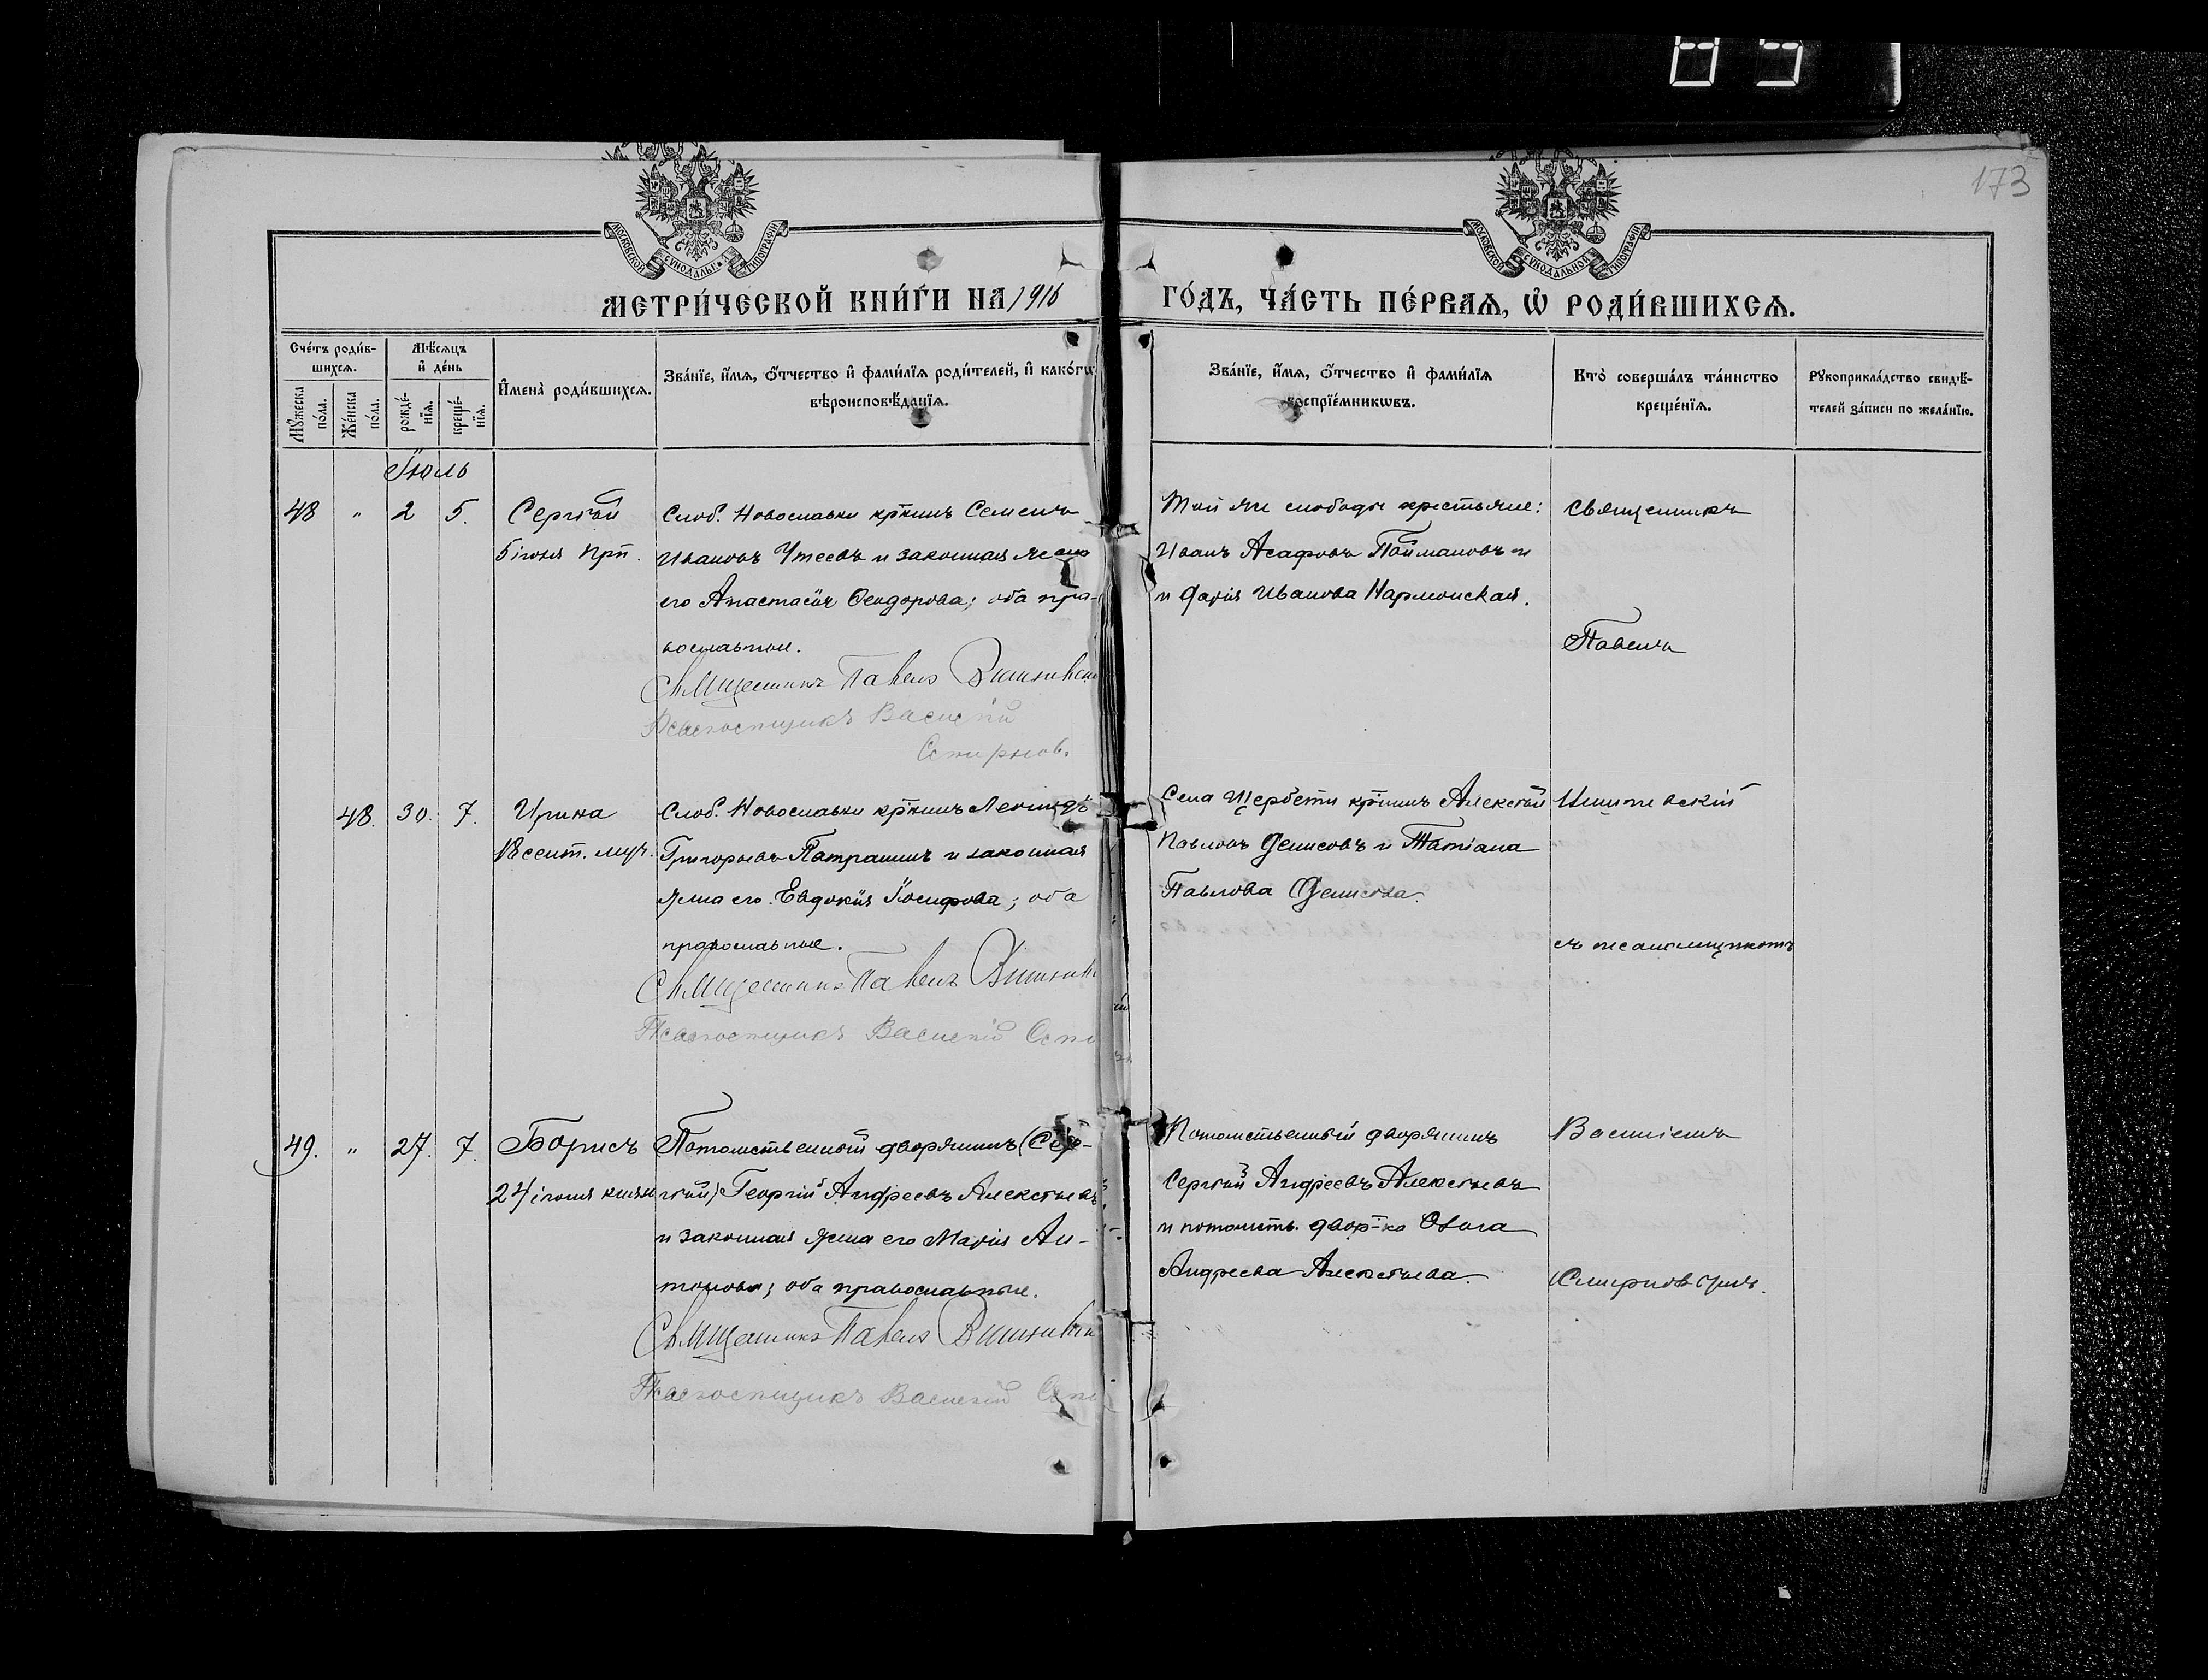 85
173
МОСКОВСКОЙ СѴНОДАЛЬНОЙ ТИПОГРАФІИ
МОСКОВСКОЙ СѴНОДАЛЬНОЙ ТИПОГРАФІИ
МЕТРИ́ЧЕСКОЙ КНИ́ГИ НА 1916
ГО́ДЪ, ЧА́СТЬ ПЕ́РВАѦ, Ѽ РОДИ́ВШИХСѦ.
Сче́тъ роди́в-
шихсѧ.
Мꙋ́жеска
по́ла.
Же́нска
по́ла.
Мѣ́сѧцъ
и҆ де́нь
рожде́-
нїѧ.
креще́-
нїѧ.
И҆мена̀ роди́вшихсѧ.
Зва́нїе, и҆́мѧ, ѻ҆́тчество и҆ фами́лїѧ роди́телей, и҆ како́гѡ
вѣроисповѣ́данїѧ.
Зва́нїе, и҆́мѧ, ѻ҆́тчество и҆ фами́лїѧ
воспрїе́мникѡвъ.
Кто̀ соверша́лъ та́инство
креще́нїѧ.
Рꙋкоприкла́дство свидѣ́-
телей за́писи по жела́нїю.
Іюль
48 " 2 5. Сергѣй
5 іюля Прп.
Слоб. Новославки кр-нинъ Семенъ
Ивановъ Утеевъ и законная жена
его Анастасія Ѳеодорова; оба пра-
вославные.
Священникъ Павелъ
Псаломщикъ Василій
Смирнов.
Той же слободы крестьяне:
Иванъ Асафовъ Поймановъ и
и Дарія Иванова Нармонская.
Священникъ
Павелъ
48. 30. 7. Ирина
18 сент. муч.
Слоб. Новославки кр-нинъ Леонидъ
Григорьевъ Патрашинъ и законная
жена его Евдокія Іосифова; оба
православные.
Священникъ Павелъ
Псаломщикъ Василій
Села Щербети кр-нинъ Алексѣй
Павловъ Денисовъ и Татіана
Павлова Денисова.
съ псаломщикомъ
49. " 27. 7. Борисъ
24 іюля князя
Потомственный дворянинъ (Сер-
гѣй) Георгій Андреевъ Алексѣевъ
и законная жена его Марія Ан-
тонова; оба православные.
Священникъ Павелъ
Псаломщикъ Василій
Потомственный дворянинъ
Сергѣй Андреевъ Алексѣевъ
и потомств. двор-ка Ольга
Андреева Алексѣева.
Василіемъ
Смирновымъ.